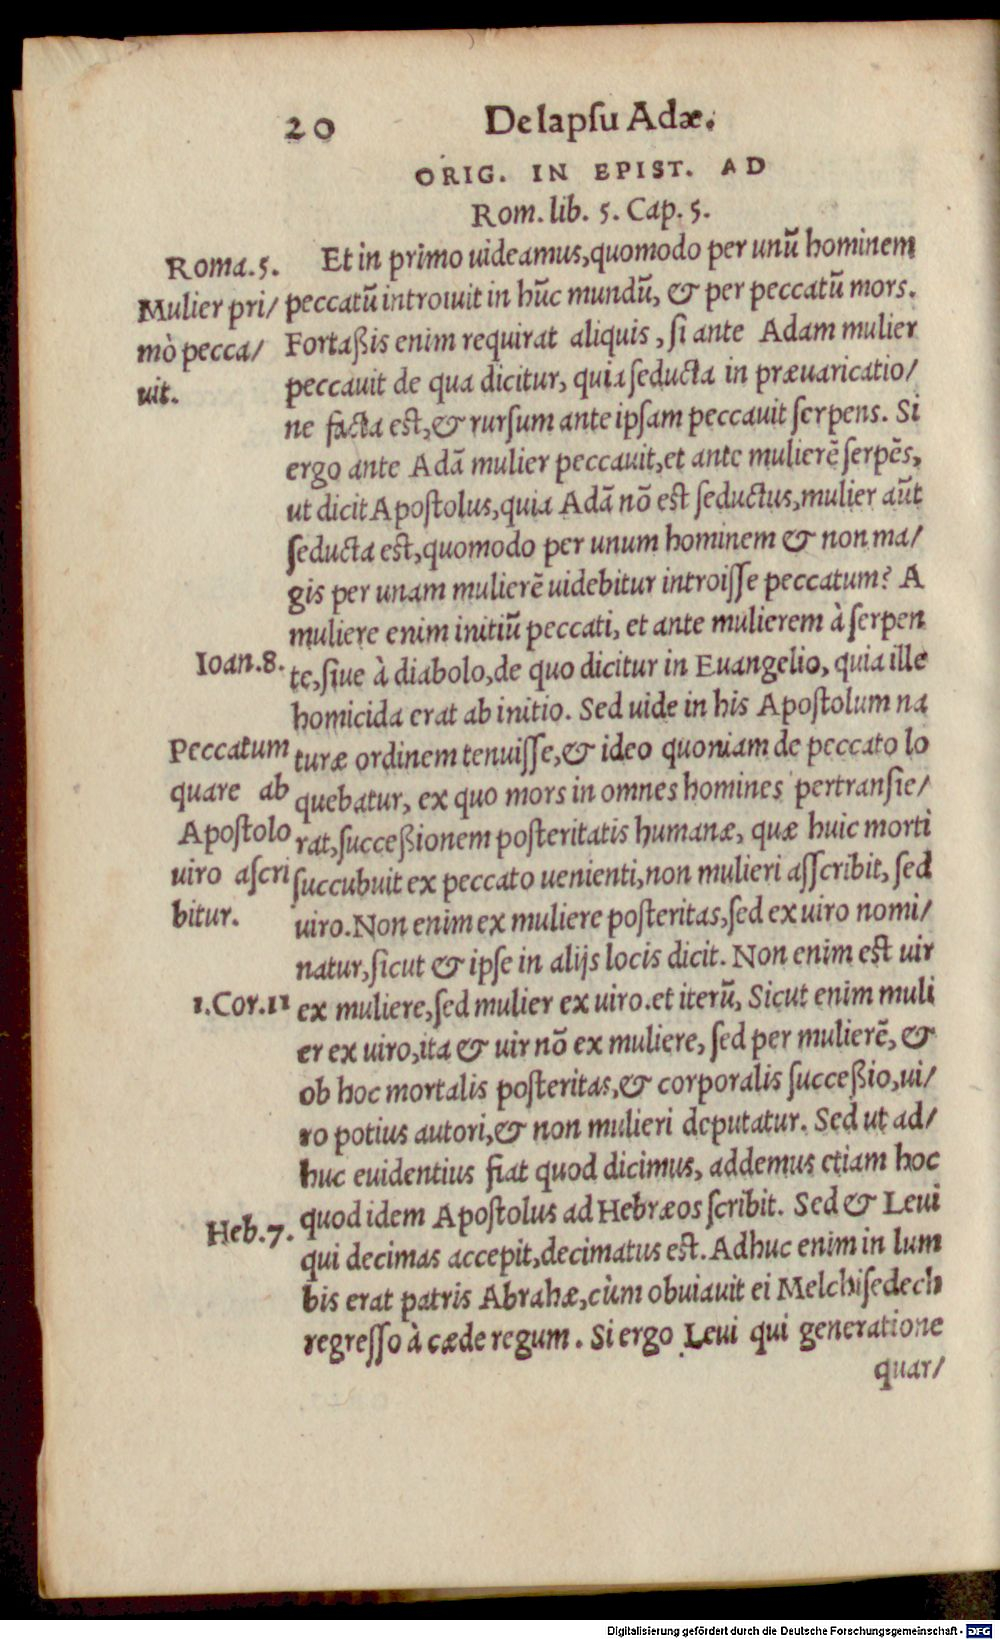 20 De lapsu Adæ.
ORIG. IN EPIST. AD
Rom. lib. 5. Cap. 5.
Roma. 5.
Mulier pri/
mò pecca/
uit.
Et in primo uideamus, quomodo per unū hominem
peccatū introiuit in hūc mundū, & per peccatū mors.
Fortaßis enim requirat aliquis, si ante Adam mulier
peccauit de qua dicitur, quia seducta in præuaricatio/
ne facta est, & rursum ante ipsam peccauit serpens. Si
ergo ante Adā mulier peccauit, et ante mulierē serpēs,
ut dicit Apostolus, quia Adā nō est seductus, mulier aūt
seducta est, quomodo per unum hominem & non ma/
gis per unam mulierē uidebitur introisse peccatum? A
muliere enim initiū peccati, et ante mulierem à serpen
Ioan. 8.
te, siue à diabolo, de quo dicitur in Euangelio, quia ille
homicida erat ab initio. Sed uide in his Apostolum na
Peccatum
quare ab
Apostolo
uiro ascri
bitur.
turæ ordinem tenuisse, & ideo quoniam de peccato lo
quebatur, ex quo mors in omnes homines pertransie/
rat, succeßionem posteritatis humanæ, quæ huic morti
succubuit ex peccato uenienti, non mulieri asscribit, sed
uiro. Non enim ex muliere posteritas, sed ex uiro nomi/
natur, sicut & ipse in alijs locis dicit. Non enim est uir
1. Cor. 11
ex muliere, sed mulier ex uiro. et iterū, Sicut enim muli
er ex uiro, ita & uir nō ex muliere, sed per mulierē, &
ob hoc mortalis posteritas, & corporalis succeßio, ui/
ro potius autori, & non mulieri deputatur. Sed ut ad/
huc euidentius fiat quod dicimus, addemus etiam hoc
Heb. 7.
quod idem Apostolus ad Hebræos scribit. Sed & Leui
qui decimas accepit, decimatus est. Adhuc enim in lum
bis erat patris Abrahæ, cùm obuiauit ei Melchisedech
regresso à cæde regum. Si ergo Leui qui generatione
quar/
Digitalisierung gefördert durch die Deutsche Forschungsgemeinschaft - DFG